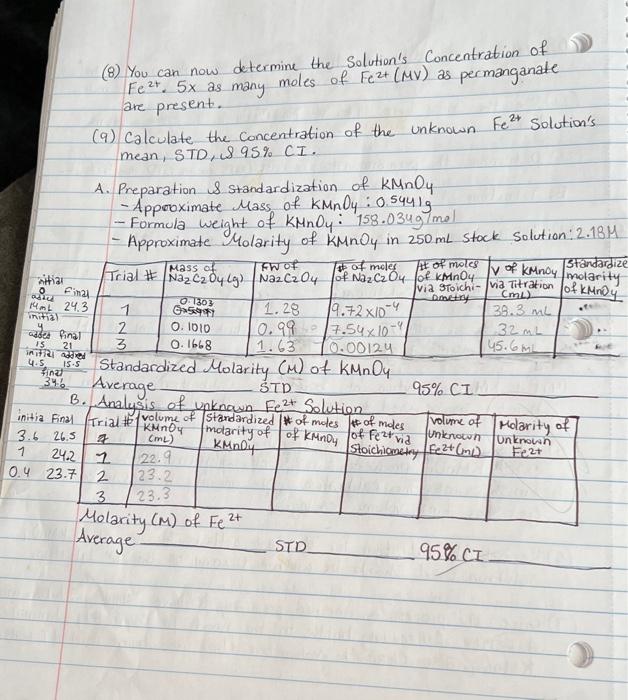 (8) You can now determine the Solution's Concentration of
Fe2+. 5x as many moles of Fe2+ (MV) as permanganate
are present.
(9) Calculate the Concentration of the unknown Fe2+ Solution's
mean, STD, & 95% CI.
A. Preparation & Standardization of KMnO4
- Approximate Mass of KMnO4: 0.5441g
- Formula weight of KMnO4: 158.034g/mol
- Approximate Molarity of KMnO4 in 250 mL stock solution: 2.18M
Trial # | Mass of Na2C2O4 (g) | FW of Na2C2O4 | # of moles of Na2C2O4 | # of moles of KMnO4 via Stoichiometry | V of KMnO4 via Titration (mL) | Standardize molarity of KMnO4
initial 0 Final
added 14mL 24.3 1 0.1303 1.28 9.72x10-4 38.3 mL
initial 4
added final 15 21 2 0.1010 0.99 7.54x10-4 32 mL
initial added 4.5 15.5 3 0.1668 1.63 0.00124 45.6 mL
final 34.6
Standardized Molarity (M) of KMnO4
Average STD 95% CI
B. Analysis of unknown Fe2+ Solution
initia Final Trial # | volume of KMnO4 (mL) | Standardized molarity of KMnO4 | # of moles of KMnO4 | # of moles of Fe2+ via Stoichiometry | volume of Unknown Fe2+ (mL) | Molarity of Unknown Fe2+
3.6 26.5 1 22.9
1 24.2 2 23.2
0.4 23.7 3 23.3
Molarity (M) of Fe2+
Average STD 95% CI